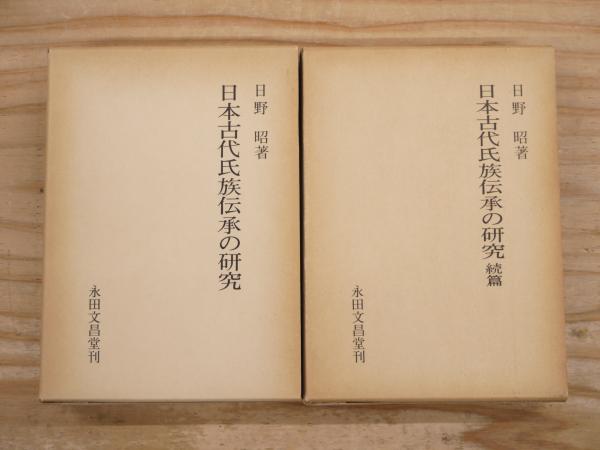 日野 昭著
日本古代氏族伝承の研究
永田文昌堂刊
日野 昭著
日本古代氏族伝承の研究 続篇
永田文昌堂刊